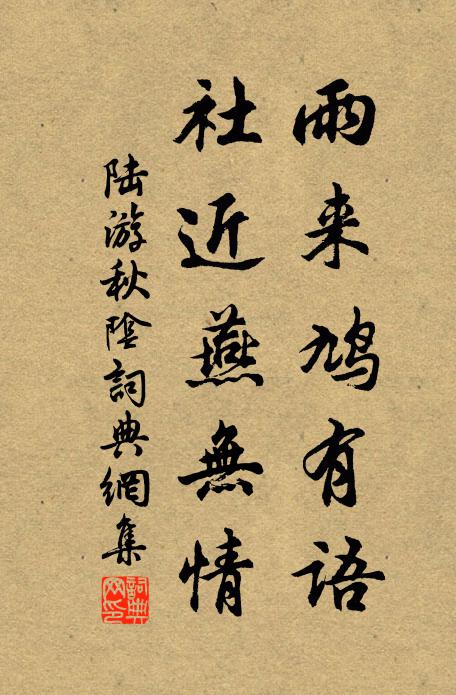 雨来鳩有语
社近燕無情
陆游秋陰詞典網集
詞典网印